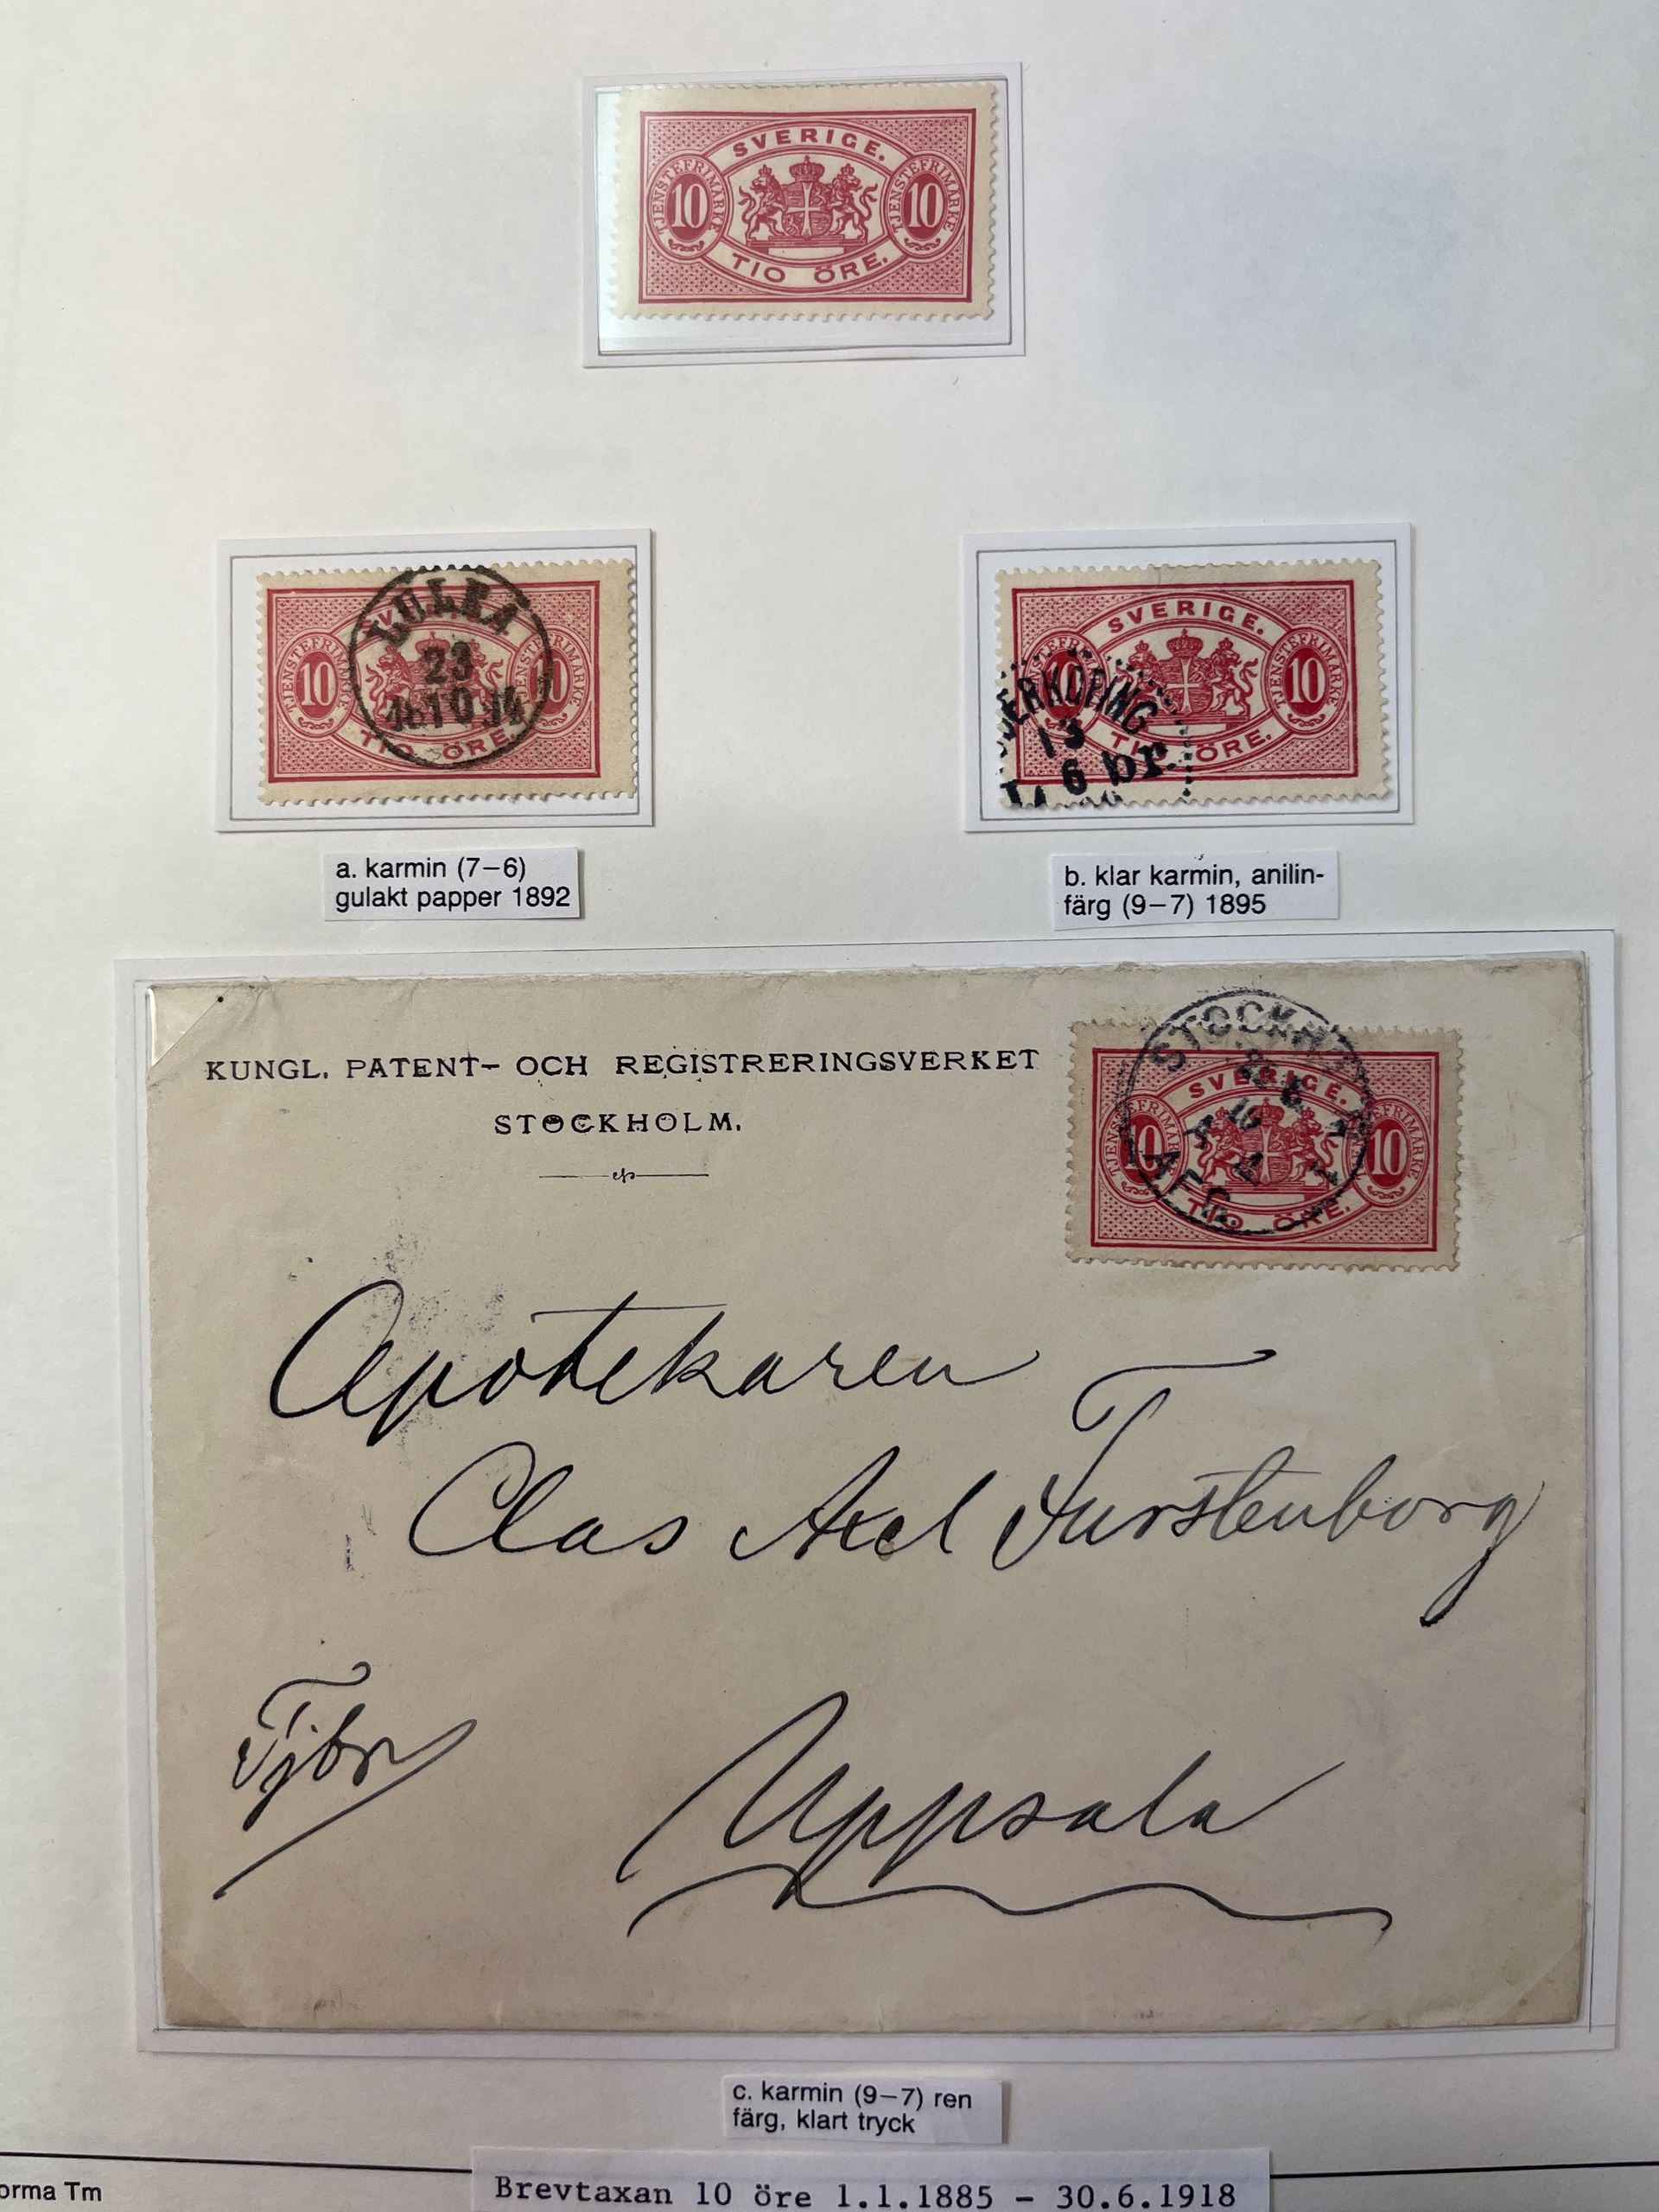 SVERIGE.
TJENSTEFRIMÄRKE
10
TJENSTEFRIMÄRKE
10
TIO ÖRE.
SVERIGE.
TJENSTEFRIMÄRKE
10
TJENSTEFRIMÄRKE
10
TIO ÖRE.
LULEÅ
23
10 14
SVERIGE.
TJENSTEFRIMÄRKE
10
TJENSTEFRIMÄRKE
10
TIO ÖRE.
DERKÖPING
13
6 br.
a. karmin (7–6)
gulakt papper 1892
b. klar karmin, anilin-
färg (9–7) 1895
KUNGL. PATENT- OCH REGISTRERINGSVERKET
STOCKHOLM.
SVERIGE.
TJENSTEFRIMÄRKE
10
TJENSTEFRIMÄRKE
10
TIO ÖRE.
STOCKHOLM
Apotekaren
Clas Axel Furstenborg
Tjbr
Uppsala
c. karmin (9–7) ren
färg, klart tryck
orma Tm
Brevtaxan 10 öre 1.1.1885 - 30.6.1918